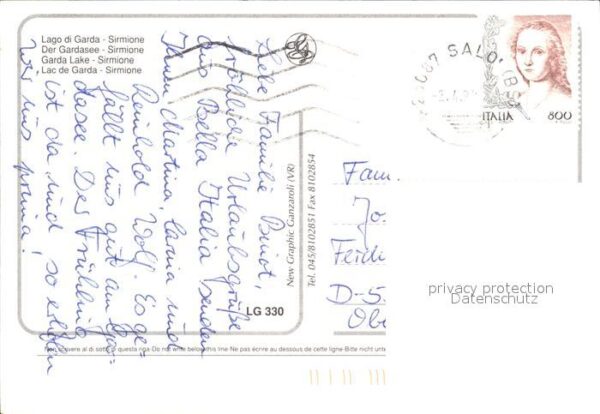 Lago di Garda - Sirmione
Der Gardasee - Sirmione
Garda Lake - Sirmione
Lac de Garda - Sirmione
Liebe Familie
fröhliche Urlaubsgrüße
aus Bella Italia senden
Ihnen Martina, Carina und
Reinhold Wolf. Es ge-
fällt uns gut am Gar-
dasee. Der Frühling
ist da und so erholen
wir uns prima!
New Graphic Ganzaroli (VR)
Tel. 045/8102851 Fax 8102854
LG 330
25087 SALO' (B
ITALIA 800
Fam.
Jo
Ferdi
D-5
Obe
privacy protection
Datenschutz
Non scrivere al di sotto di questa riga-Do not write below this line-Ne pas écrire au dessous de cette ligne-Bitte nicht unt